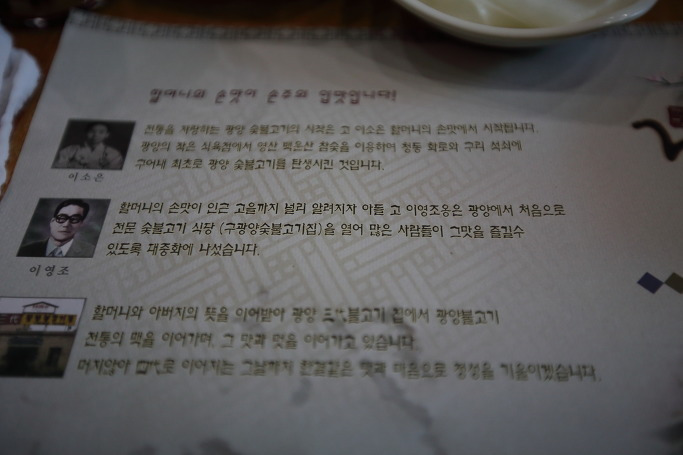 할머니의 손맛이 손주의 입맛입니다!
전통을 자랑하는 광양 숯불고기의 시작은 고 이소은 할머니의 손맛에서 시작됩니다.
광양의 작은 식육점에서 영산 백운산 참숯을 이용하여 청동 화로와 구리 석쇠에
구어내 최초로 광양 숯불고기를 탄생시킨 것입니다.
이소은
할머니의 손맛이 인근 고을까지 널리 알려지자 아들 고 이영조옹은 광양에서 처음으로
전문 숯불고기 식당 (구광양숯불고기집)을 열어 많은 사람들이 그맛을 즐길수
있도록 대중화에 나섰습니다.
이영조
할머니와 아버지의 뜻을 이어받아 광양 三代불고기 집에서 광양불고기
전통의 맥을 이어가며, 그 맛과 멋을 이어가고 있습니다.
머지않아 四代로 이어지는 그날까지 한결같은 맛과 마음으로 정성을 기울이겠습니다.